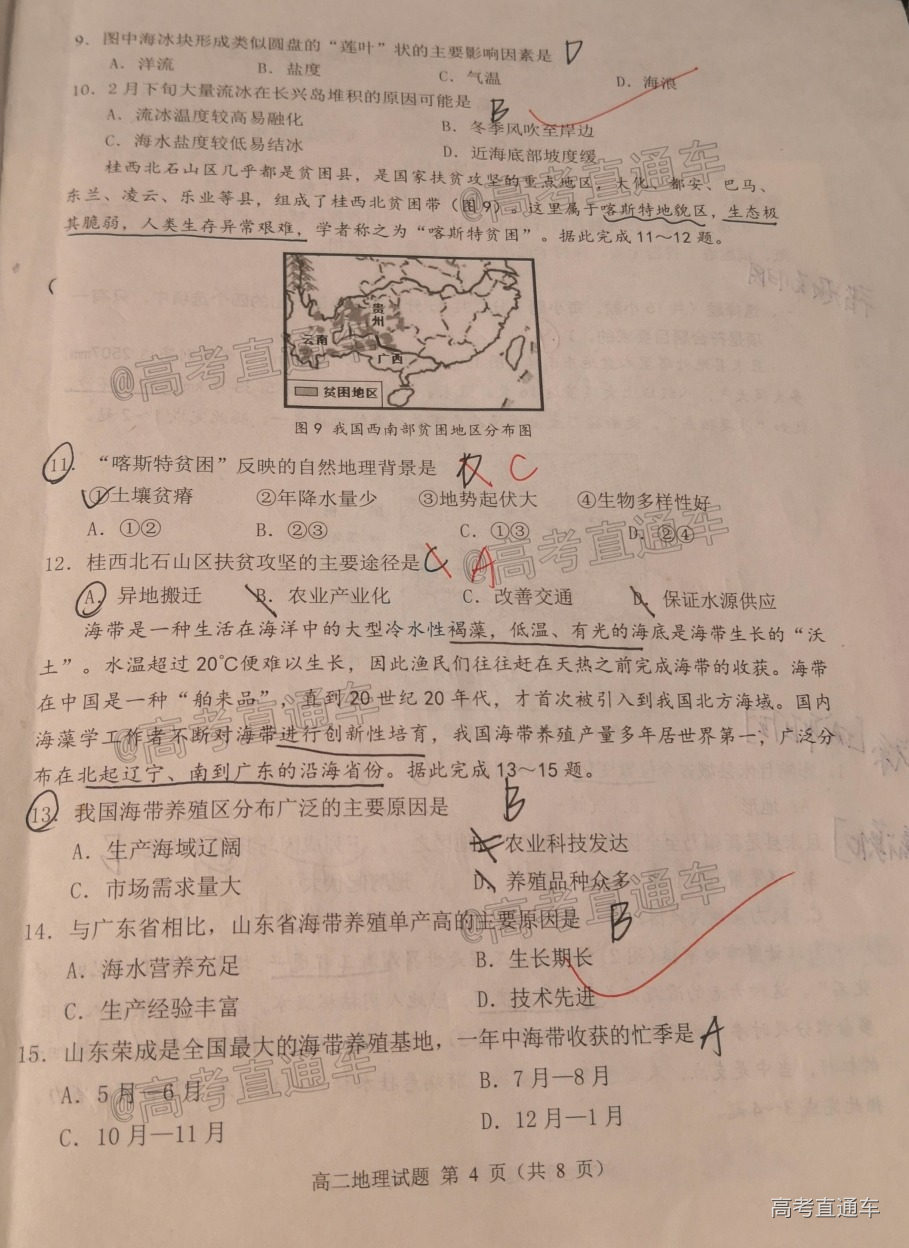 9. 图中海冰块形成类似圆盘的“莲叶”状的主要影响因素是 D
A. 洋流 B. 盐度 C. 气温 D. 海浪
10. 2月下旬大量流冰在长兴岛堆积的原因可能是 B
A. 流冰温度较高易融化 B. 冬季风吹至岸边
C. 海水盐度较低易结冰 D. 近海底部坡度缓
桂西北石山区几乎都是贫困县，是国家扶贫攻坚的重点地区，大化、都安、巴马、
东兰、凌云、乐业等县，组成了桂西北贫困带（图9）。这里属于喀斯特地貌区，生态极
其脆弱，人类生存异常艰难，学者称之为“喀斯特贫困”。据此完成11～12题。
贵州
云南
广西
贫困地区
图9 我国西南部贫困地区分布图
11. “喀斯特贫困”反映的自然地理背景是 C
①土壤贫瘠 ②年降水量少 ③地势起伏大 ④生物多样性好
A. ①② B. ②③ C. ①③ D. ②④
12. 桂西北石山区扶贫攻坚的主要途径是 C A
A. 异地搬迁 B. 农业产业化 C. 改善交通 D. 保证水源供应
海带是一种生活在海洋中的大型冷水性褐藻，低温、有光的海底是海带生长的“沃
土”。水温超过20℃便难以生长，因此渔民们往往赶在天热之前完成海带的收获。海带
在中国是一种“舶来品”，直到20世纪20年代，才首次被引入到我国北方海域。国内
海藻学工作者不断对海带进行创新性培育，我国海带养殖产量多年居世界第一，广泛分
布在北起辽宁、南到广东的沿海省份。据此完成13～15题。
13. 我国海带养殖区分布广泛的主要原因是 B
A. 生产海域辽阔 B. 农业科技发达
C. 市场需求量大 D. 养殖品种众多
14. 与广东省相比，山东省海带养殖单产高的主要原因是 B
A. 海水营养充足 B. 生长期长
C. 生产经验丰富 D. 技术先进
15. 山东荣成是全国最大的海带养殖基地，一年中海带收获的忙季是 A
A. 5月—6月 B. 7月—8月
C. 10月—11月 D. 12月—1月
高二地理试题 第4页（共8页）
@高考直通车
@高考直通车
@高考直通车
@高考直通车
@高考直通车
@高考直通车
高考直通车